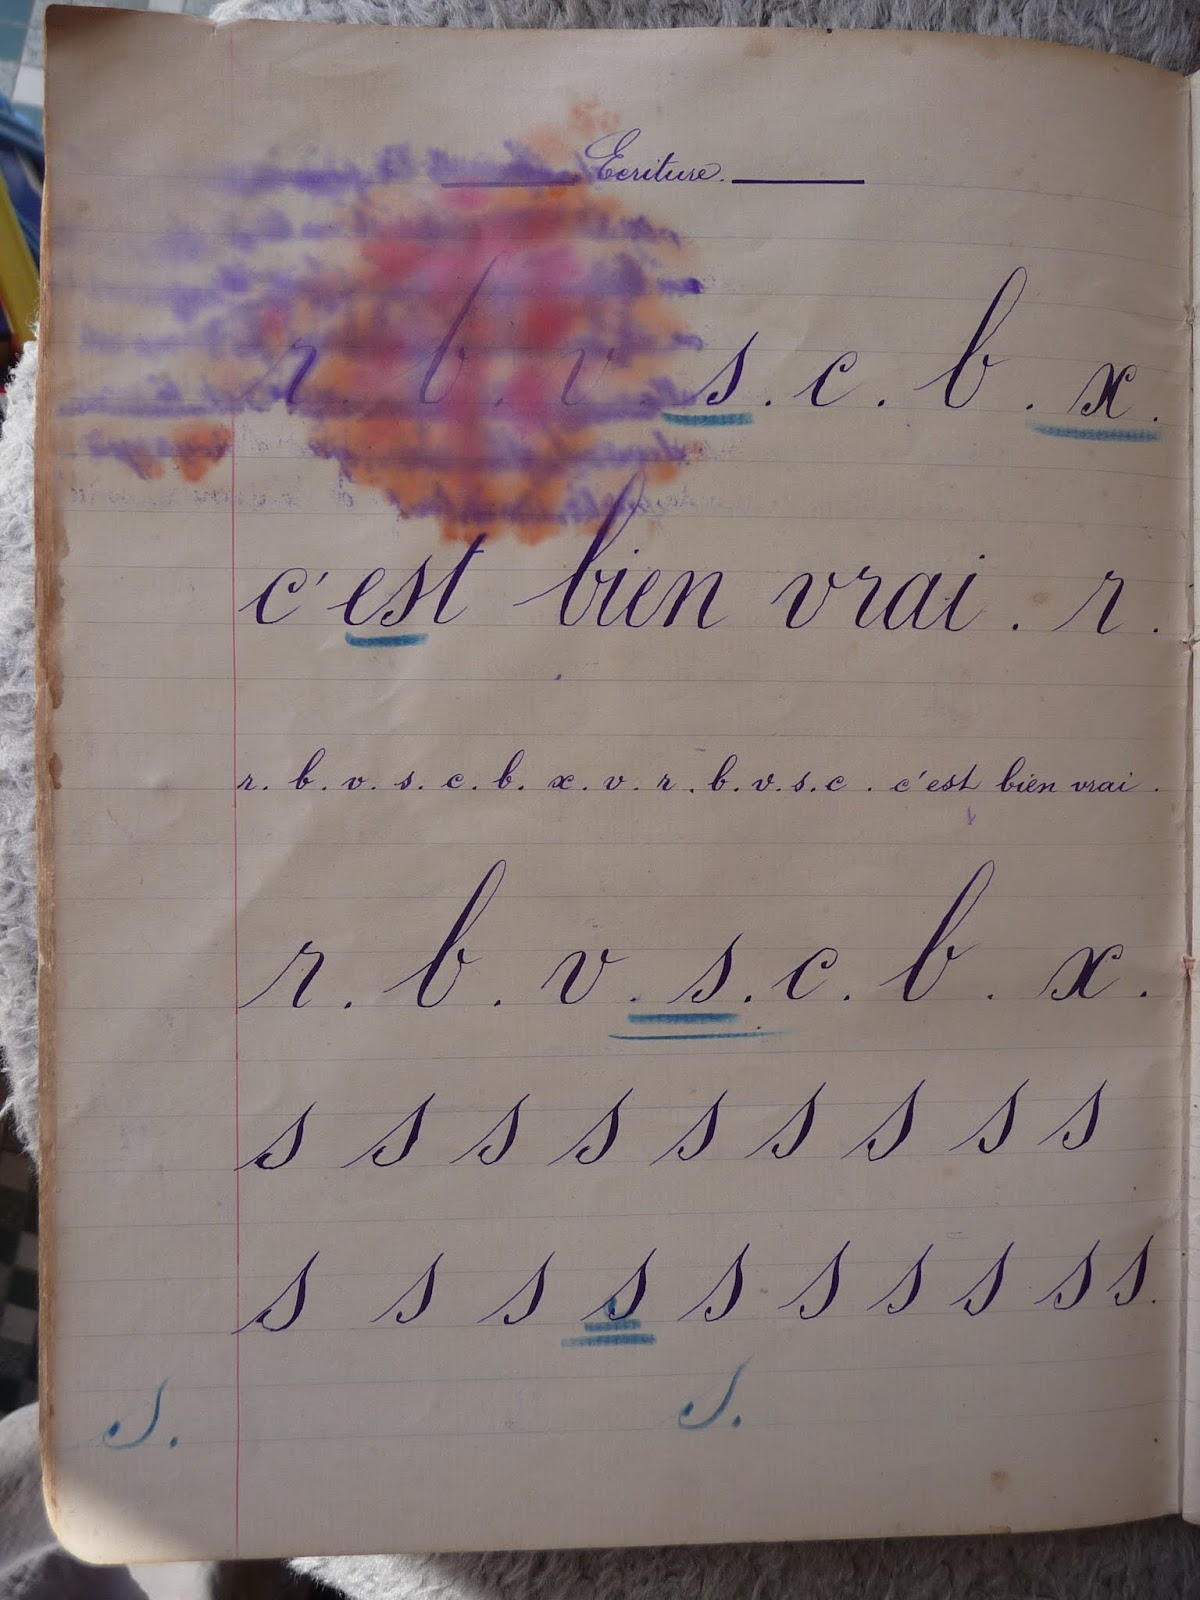 Ecriture.
r. b. v. s. c. b. x.
c'est bien vrai. r.
r. b. v. s. c. b. x. v. r. b. v. s. c. c'est bien vrai.
r. b. v. s. c. b. x.
s s s s s s s s s
s s s s s s s s s s.
s. s.